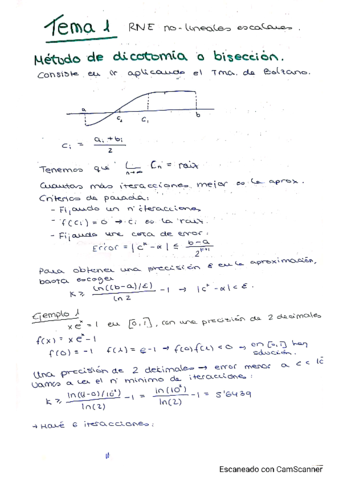 Tema 1 RNE no-lineales escalares.
Método de dicotomía o bisección.
Consiste en ir aplicando el Tma. de Bolzano.
a c₂ c₁ b
cᵢ = (aᵢ + bᵢ)/2
Tenemos que L n→∞ Cₙ = raíz
Cuantas más iteracciones, mejor es la aprox.
Criterios de parada:
- Fijando un nº iteracciones
- f(cᵢ) = 0 → cᵢ es la raíz.
- Fijando una cota de error.
Error = |cᵏ - α| ≤ (b-a)/2ᵏ⁺¹
Para obtener una precisión ε en la aproximación,
basta escoger
k ≥ ln((b-a)/ε)/ln 2 - 1 → |cᵏ - α| < ε.
Ejemplo 1
xeˣ = 1 en [0,1], con una precisión de 2 decimales
f(x) = xeˣ - 1
f(0) = -1 f(1) = e-1 → f(0)f(1) < 0 → en [0,1] hay
solución.
Una precisión de 2 decimales → error menor a ε < 10
Vamos a ver el nº mínimo de iteracciones:
k ≥ ln((1-0)/10⁻²)/ln(2) - 1 = ln(10²)/ln(2) - 1 = 5'6439
→ Haré 6 iteracciones:
Escaneado con CamScanner